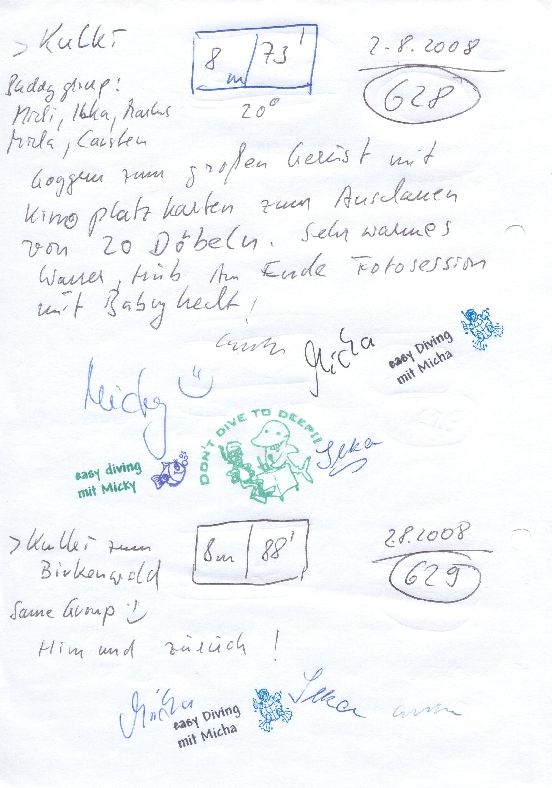 > Kulki
8 m / 73'
2-8.2008
628
20°
Buddygroup:
Micki, Ilka, Markus
Carsten
zum großen Gerüst mit
Kinoplatzkarten zum Ausschauen
von 20 Döbeln. Sehr warmes
Wasser, trüb. Am Ende Fotosession
mit Babyhecht!
Micha
easy Diving
mit Micha
Micky
DON'T DIVE TO DEEP!!!
Ilka
easy diving
mit Micky
> Kulki zum
Birkenwald
8m / 88'
2.8.2008
629
Same Group
Hin und zurück !
Micha
easy Diving
mit Micha
Ilka